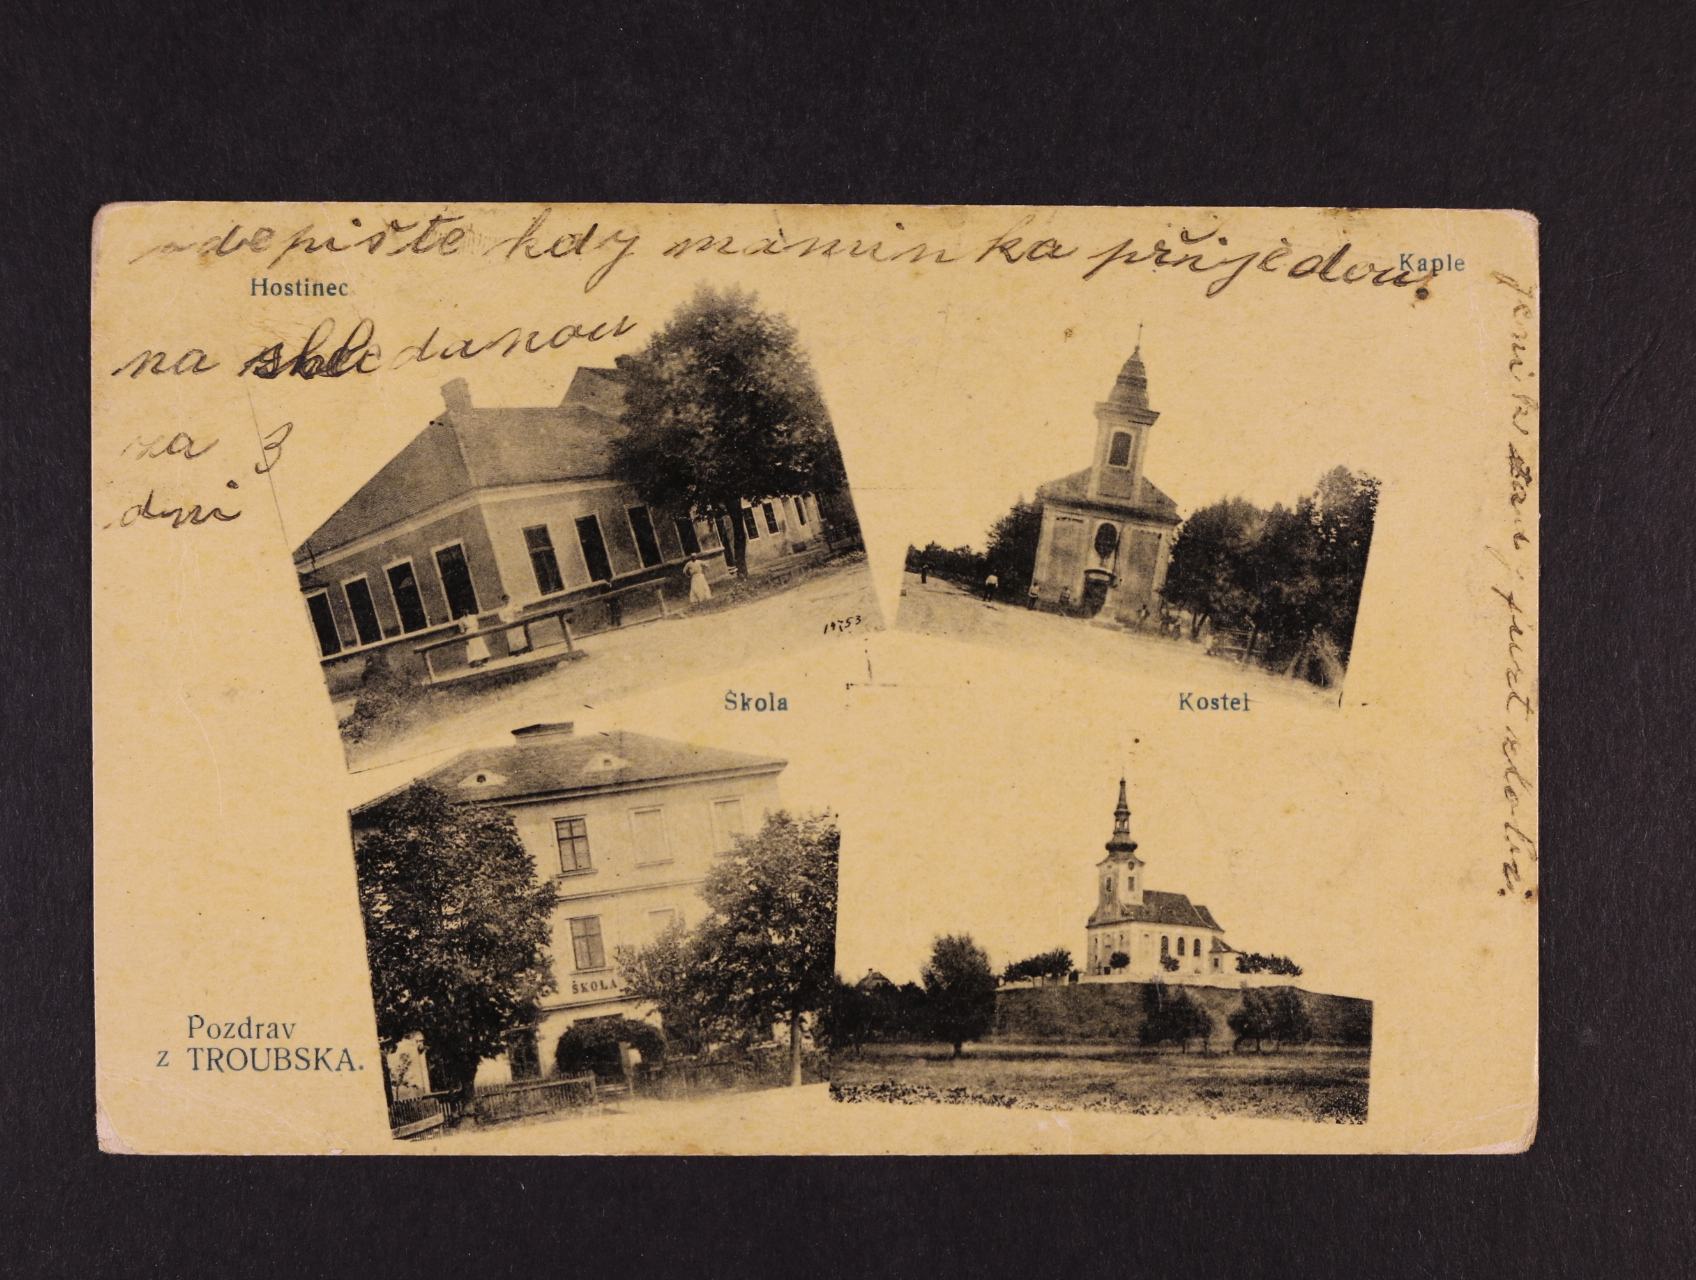 odepište kdy maminka přijedou.
Hostinec
Kaple
na shledanou
za 3
dni
19753
Škola
Kostel
ŠKOLA
Pozdrav
z TROUBSKA.
jsni k